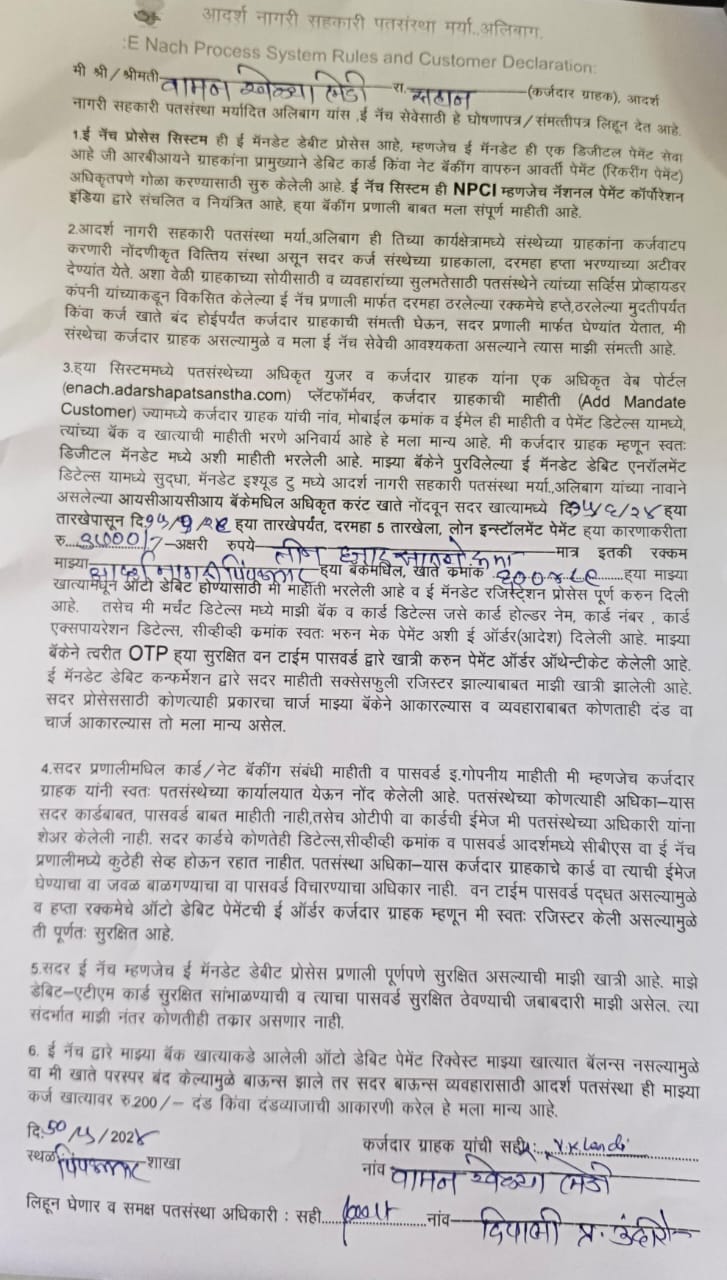 आदर्श नागरी सहकारी पतसंस्था मर्या.,अलिबाग.
:E Nach Process System Rules and Customer Declaration:
मी श्री/श्रीमती वामन रा. (कर्जदार ग्राहक), आदर्श
नागरी सहकारी पतसंस्था मर्यादित अलिबाग यांस ,ई नॅच सेवेसाठी हे घोषणापत्र/संमत्तीपत्र लिहून देत आहे.
1.ई नॅच प्रोसेस सिस्टिम ही ई मॅनडेट डेबीट प्रोसेस आहे, म्हणजेच ई मॅनडेट ही एक डिजीटल पेमेंट सेवा
आहे जी आरबीआयने ग्राहकांना प्रामुख्याने डेबिट कार्ड किंवा नेट बॅकींग वापरुन आवर्ती पेमेंट (रिकरींग पेमेंट)
अधिकृतपणे गोळा करण्यासाठी सुरु केलेली आहे. ई नॅच सिस्टिम ही NPCI म्हणजेच नॅशनल पेमेंट कॉर्पोरेशन
इंडिया द्वारे संचलित व नियंत्रित आहे, ह्या बॅकींग प्रणाली बाबत मला संपूर्ण माहीती आहे.
2.आदर्श नागरी सहकारी पतसंस्था मर्या.,अलिबाग ही तिच्या कार्यक्षेत्रामध्ये संस्थेच्या ग्राहकांना कर्जवाटप
करणारी नोंदणीकृत वित्तिय संस्था असून सदर कर्ज संस्थेच्या ग्राहकाला, दरमहा हप्ता भरण्याच्या अटीवर
देण्यांत येते. अशा वेळी ग्राहकाच्या सोयीसाठी व व्यवहारांच्या सुलभतेसाठी पतसंस्थेने त्यांच्या सर्व्हिस प्रोव्हायडर
कंपनी यांच्याकडून विकसित केलेल्या ई नॅच प्रणाली मार्फत दरमहा ठरलेल्या रक्कमेचे हप्ते,ठरलेल्या मुदतीपर्यंत
किंवा कर्ज खाते बंद होईपर्यंत कर्जदार ग्राहकाची संमत्ती घेऊन, सदर प्रणाली मार्फत घेण्यांत येतात, मी
संस्थेचा कर्जदार ग्राहक असल्यामुळे व मला ई नॅच सेवेची आवश्यकता असल्याने त्यास माझी संमत्ती आहे.
3.ह्या सिस्टममध्ये पतसंस्थेच्या अधिकृत युजर व कर्जदार ग्राहक यांना एक अधिकृत वेब पोर्टल
(enach.adarshapatsanstha.com) प्लॅटफॉर्मवर, कर्जदार ग्राहकाची माहीती (Add Mandate
Customer) ज्यामध्ये कर्जदार ग्राहक यांची नांव, मोबाईल क्रमांक व ईमेल ही माहीती व पेमेंट डिटेल्स यामध्ये,
त्यांच्या बॅक व खात्याची माहीती भरणे अनिवार्य आहे हे मला मान्य आहे. मी कर्जदार ग्राहक म्हणून स्वतः
डिजीटल मॅनडेट मध्ये अशी माहीती भरलेली आहे. माझ्या बॅकेने पुरविलेल्या ई मॅनडेट डेबिट एनरॉलमेंट
डिटेल्स यामध्ये सुद्धा, मॅनडेट इश्यूड टु मध्ये आदर्श नागरी सहकारी पतसंस्था मर्या.,अलिबाग यांच्या नावाने
असलेल्या आयसीआयसीआय बॅकेमधिल अधिकृत करंट खाते नोंदवून सदर खात्यामध्ये दि. ह्या
तारखेपासून दि. ह्या तारखेपर्यंत, दरमहा 5 तारखेला, लोन इन्स्टॉलमेंट पेमेंट ह्या कारणाकरीता
रु. अक्षरी रुपये तीन हजार मात्र इतकी रक्कम
माझ्या ह्या बॅकेमधिल, खाते क्रमांक ह्या माझ्या
खात्यामधून ऑटो डेबिट होण्यासाठी मी माहीती भरलेली आहे व ई मॅनडेट रजिस्ट्रेशन प्रोसेस पूर्ण करुन दिली
आहे. तसेच मी मर्चंट डिटेल्स मध्ये माझी बॅक व कार्ड डिटेल्स जसे कार्ड होल्डर नेम, कार्ड नंबर , कार्ड
एक्सपायरेशन डिटेल्स, सीव्हीव्ही क्रमांक स्वतः भरुन मेक पेमेंट अशी ई ऑर्डर(आदेश) दिलेली आहे. माझ्या
बॅकेने त्वरीत OTP ह्या सुरक्षित वन टाईम पासवर्ड द्वारे खात्री करुन पेमेंट ऑर्डर ऑथेन्टीकेट केलेली आहे.
ई मॅनडेट डेबिट कन्फर्मेशन द्वारे सदर माहीती सक्सेसफुली रजिस्टर झाल्याबाबत माझी खात्री झालेली आहे.
सदर प्रोसेससाठी कोणत्याही प्रकारचा चार्ज माझ्या बॅकेने आकारल्यास व व्यवहाराबाबत कोणताही दंड वा
चार्ज आकारल्यास तो मला मान्य असेल.
4.सदर प्रणालीमधिल कार्ड/नेट बॅकींग संबंधी माहीती व पासवर्ड इ.गोपनीय माहीती मी म्हणजेच कर्जदार
ग्राहक यांनी स्वतः पतसंस्थेच्या कार्यालयात येऊन नोंद केलेली आहे. पतसंस्थेच्या कोणत्याही अधिका–यास
सदर कार्डबाबत, पासवर्ड बाबत माहीती नाही,तसेच ओटीपी वा कार्डची ईमेज मी पतसंस्थेच्या अधिकारी यांना
शेअर केलेली नाही. सदर कार्डचे कोणतेही डिटेल्स,सीव्हीव्ही क्रमांक व पासवर्ड आदर्शमध्ये सीबीएस वा ई नॅच
प्रणालीमध्ये कुठेही सेव्ह होऊन रहात नाहीत. पतसंस्था अधिका–यास कर्जदार ग्राहकाचे कार्ड वा त्याची ईमेज
घेण्याचा वा जवळ बाळगण्याचा वा पासवर्ड विचारण्याचा अधिकार नाही. वन टाईम पासवर्ड पद्धत असल्यामुळे
व हप्ता रक्कमेचे ऑटो डेबिट पेमेंटची ई ऑर्डर कर्जदार ग्राहक म्हणून मी स्वतः रजिस्टर केली असल्यामुळे
ती पूर्णतः सुरक्षित आहे.
5.सदर ई नॅच म्हणजेच ई मॅनडेट डेबीट प्रोसेस प्रणाली पूर्णपणे सुरक्षित असल्याची माझी खात्री आहे. माझे
डेबिट–एटीएम कार्ड सुरक्षित सांभाळण्याची व त्याचा पासवर्ड सुरक्षित ठेवण्याची जबाबदारी माझी असेल. त्या
संदर्भात माझी नंतर कोणतीही तकार असणार नाही.
6. ई नॅच द्वारे माझ्या बॅक खात्याकडे आलेली ऑटो डेबिट पेमेंट रिक्वेस्ट माझ्या खात्यात बॅलन्स नसल्यामुळे
वा मी खाते परस्पर बंद केल्यामुळे बाऊन्स झाले तर सदर बाऊन्स व्यवहारासाठी आदर्श पतसंस्था ही माझ्या
कर्ज खात्यावर रु.200/– दंड किंवा दंडव्याजाची आकारणी करेल हे मला मान्य आहे.
दि. /2024
कर्जदार ग्राहक यांची सही:
स्थळ शाखा
नांव वामन
लिहून घेणार व समक्ष पतसंस्था अधिकारी : सही नांव दिपाली प्र.